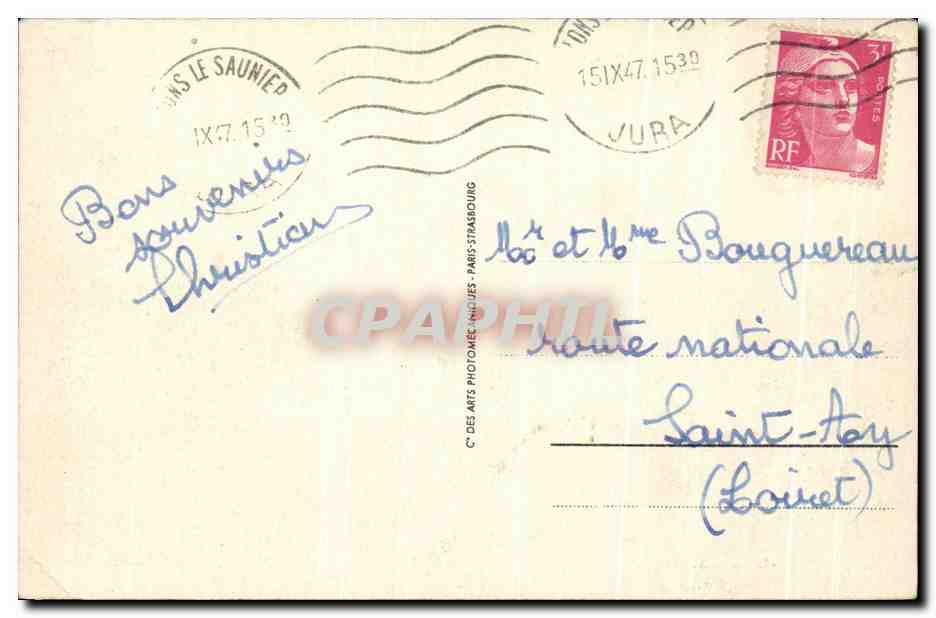 ONS LE SAUNIER
IX47.1530
ONS
15IX47.1530
JURA
3F
POSTES
RF
Bons
souvenirs
Christian
Cie DES ARTS PHOTOMECANIQUES - PARIS-STRASBOURG
CPAPHIL
Mr et Mme Bouguereau
route nationale
Saint-Ay
(Loiret)